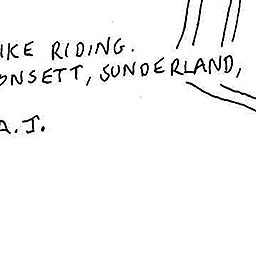 IKE RIDING.
ONSETT, SUNDERLAND,
A.J.